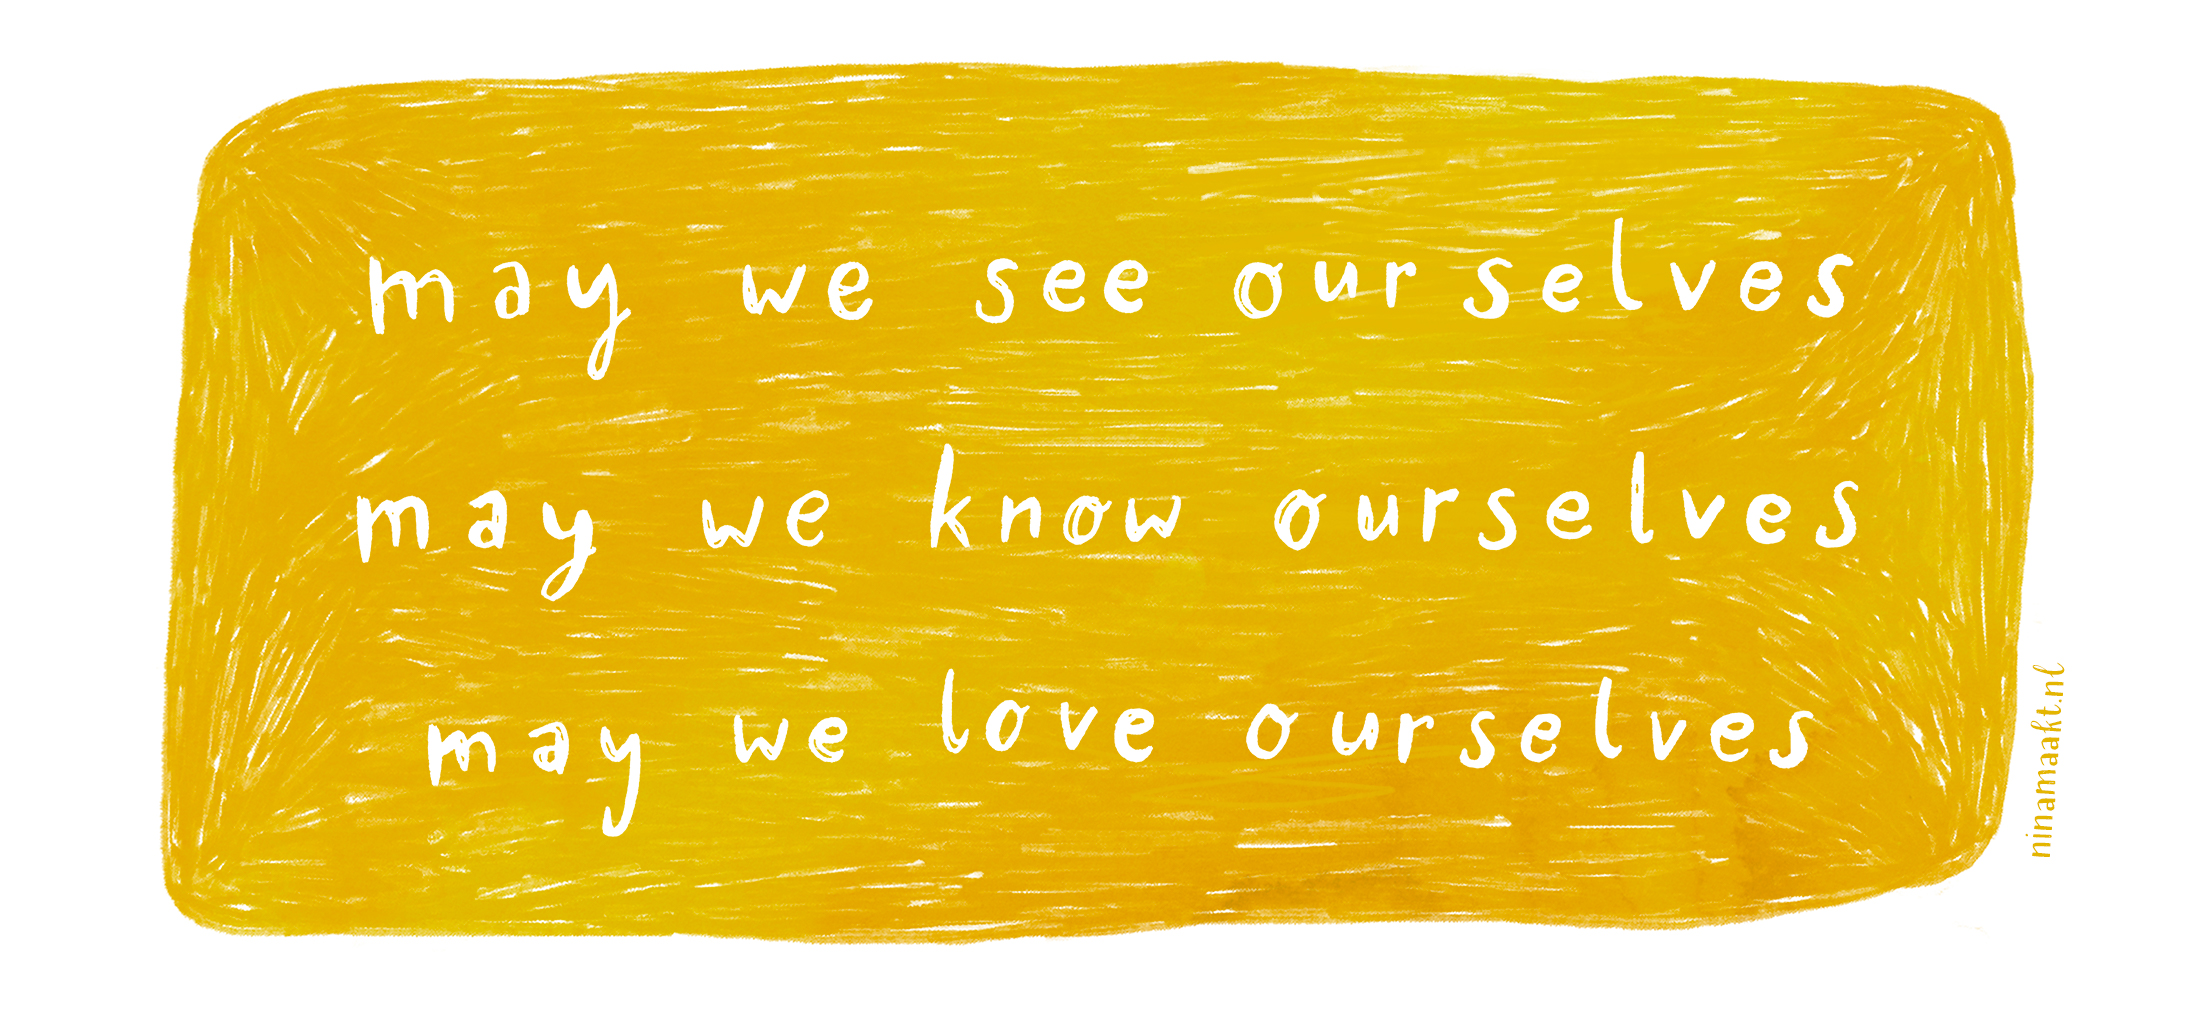 may we see ourselves
may we know ourselves
may we love ourselves
ninamaakt.nl